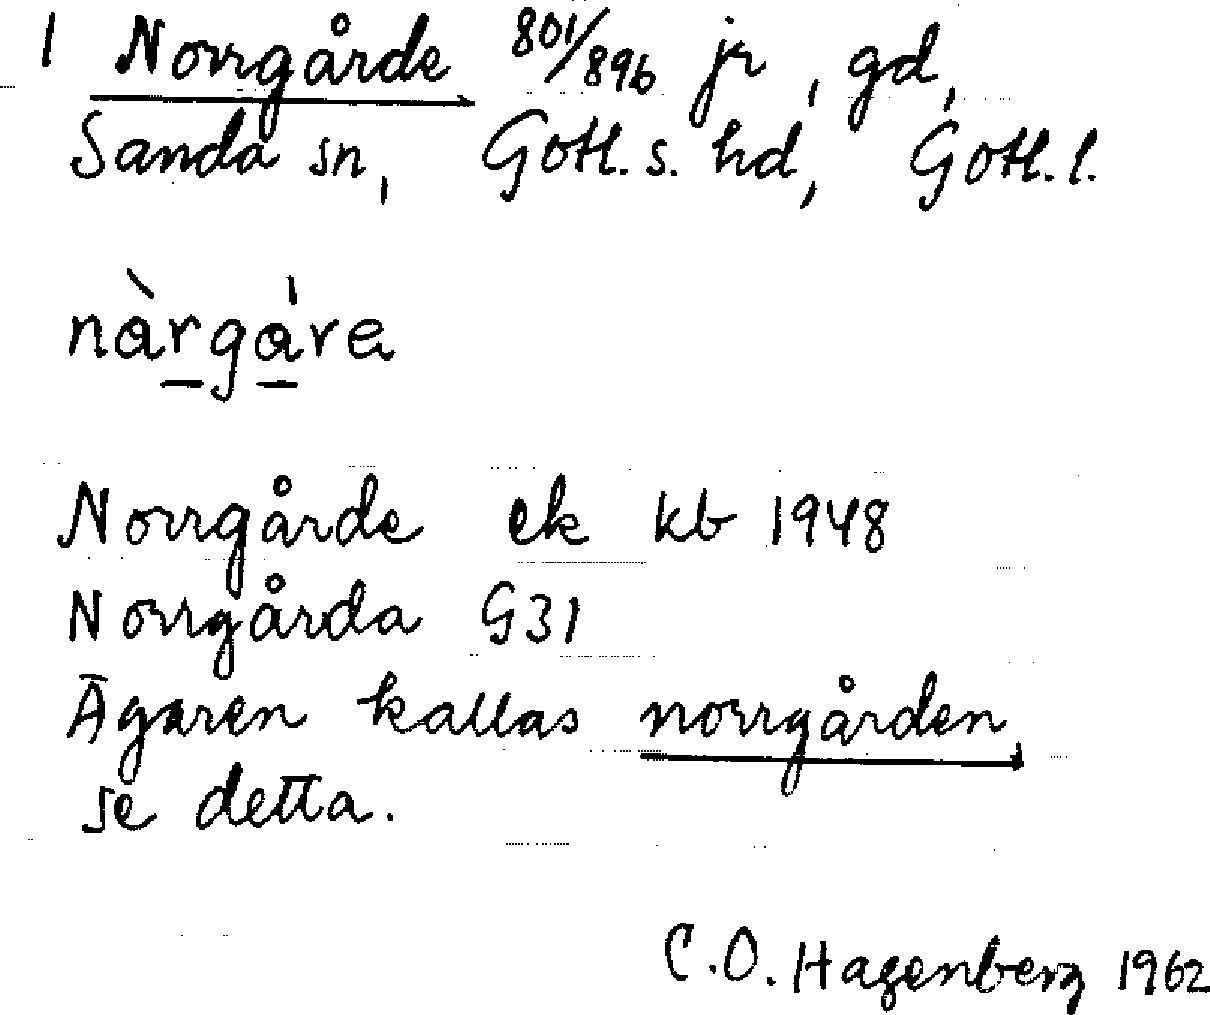 1 Norrgårde 801/896 jr, gd,
Sanda sn, Gotl. s. hd, Gotl. l.
nàrgáre
Norrgårde ek kb 1948
Norrgårda G31
Ägaren kallas norrgården,
se detta.
C.O. Hagenberg 1962